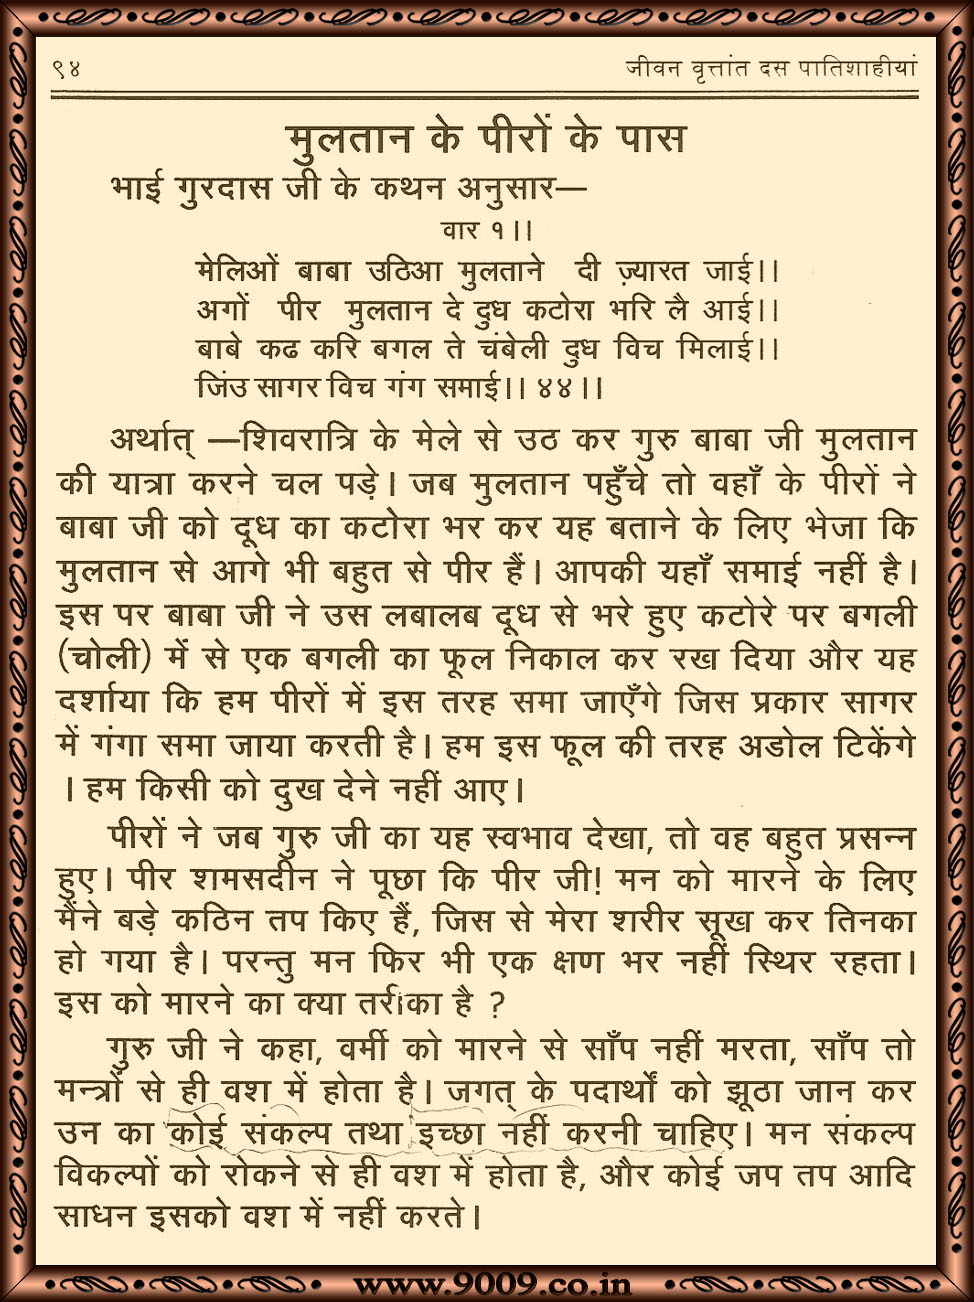 ९४ जीवन वृत्तांत दस पातिशाहीयां
मुलतान के पीरों के पास
भाई गुरदास जी के कथन अनुसार—
वार १।।
मेलिओं बाबा उठिआ मुलताने दी ज़्यारत जाई।।
अगों पीर मुलतान दे दुध कटोरा भरि लै आई।।
बाबे कढ करि बगल ते चंबेली दुध विच मिलाई।।
जिंउ सागर विच गंग समाई।। ४४।।
अर्थात् —शिवरात्रि के मेले से उठ कर गुरु बाबा जी मुलतान
की यात्रा करने चल पड़े। जब मुलतान पहुँचे तो वहाँ के पीरों ने
बाबा जी को दूध का कटोरा भर कर यह बताने के लिए भेजा कि
मुलतान से आगे भी बहुत से पीर हैं। आपकी यहाँ समाई नहीं है।
इस पर बाबा जी ने उस लबालब दूध से भरे हुए कटोरे पर बगली
(चोली) में से एक बगली का फूल निकाल कर रख दिया और यह
दर्शाया कि हम पीरों में इस तरह समा जाएँगे जिस प्रकार सागर
में गंगा समा जाया करती है। हम इस फूल की तरह अडोल टिकेंगे
। हम किसी को दुख देने नहीं आए।
पीरों ने जब गुरु जी का यह स्वभाव देखा, तो वह बहुत प्रसन्न
हुए। पीर शमसदीन ने पूछा कि पीर जी! मन को मारने के लिए
मैंने बड़े कठिन तप किए हैं, जिस से मेरा शरीर सूख कर तिनका
हो गया है। परन्तु मन फिर भी एक क्षण भर नहीं स्थिर रहता।
इस को मारने का क्या तरीका है ?
गुरु जी ने कहा, वर्मी को मारने से साँप नहीं मरता, साँप तो
मन्त्रों से ही वश में होता है। जगत् के पदार्थों को झूठा जान कर
उन का कोई संकल्प तथा इच्छा नहीं करनी चाहिए। मन संकल्प
विकल्पों को रोकने से ही वश में होता है, और कोई जप तप आदि
साधन इसको वश में नहीं करते।
www.9009.co.in